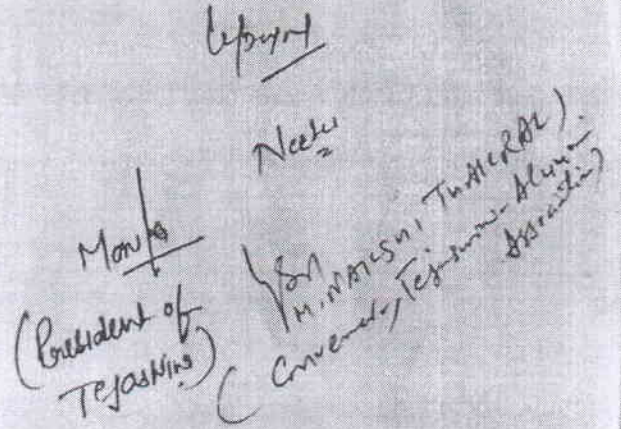 Neetu
Monika
(President of
Tejasvini)
MINAKSHI THAKRAL).
(Convener, Tejasvini-Alumni
Association)